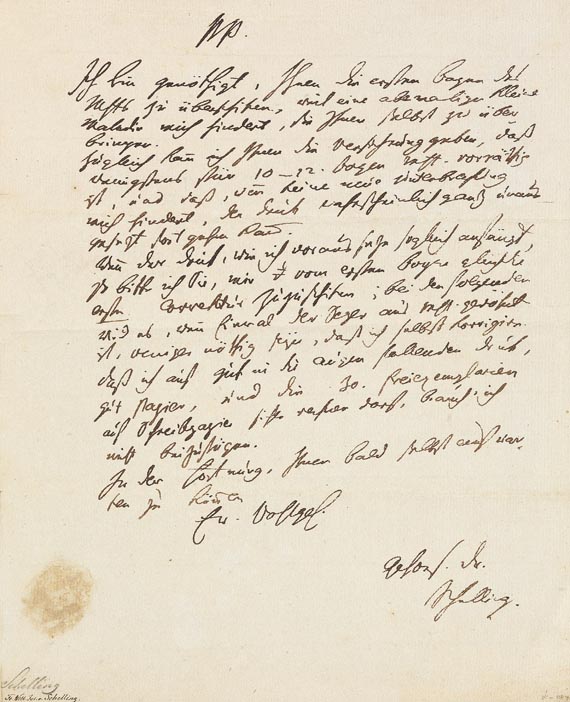 PP.
Ich bin genöthigt, Ihnen die ersten Bogen des
Msts zu überschicken, weil eine abermalige kleine
Maladie mich hindert, sie Ihnen selbst zu über
bringen.
Zugleich kann ich Ihnen die Versicherung geben, daß
wenigstens für 10–12. Bogen Mst. vorräthig
ist, und daß, wenn keine neue Unterbrechung
mich hindert, der Druck wahrscheinlich ganz unaus-
gesetzt fort gehen kann.
Wenn der Druck, wie ich voraus setze sogleich anfängt,
so bitte ich Sie, mir vom ersten Bogen gleich die
erste Correktur zuzuschicken; bei den folgenden
wird es, wenn Einmal der Sezer ans Mst. gewöhnt
ist, weniger nöthig seyn, daß ich selbst korrigire.
daß ich auf gut in die Augen fallenden Druck,
gut Papier, und die 30. Freiexemplarien
auf Schreibpapier sicher rechnen darf, brauch ich
nicht beizufügen.
In der Hoffnung, Ihnen bald selbst auf war-
ten zu können
Ew. Wohlgeb.
gehors. Dr.
Schelling.
Schelling
Fr. Wilh. Jos. v. Schelling.